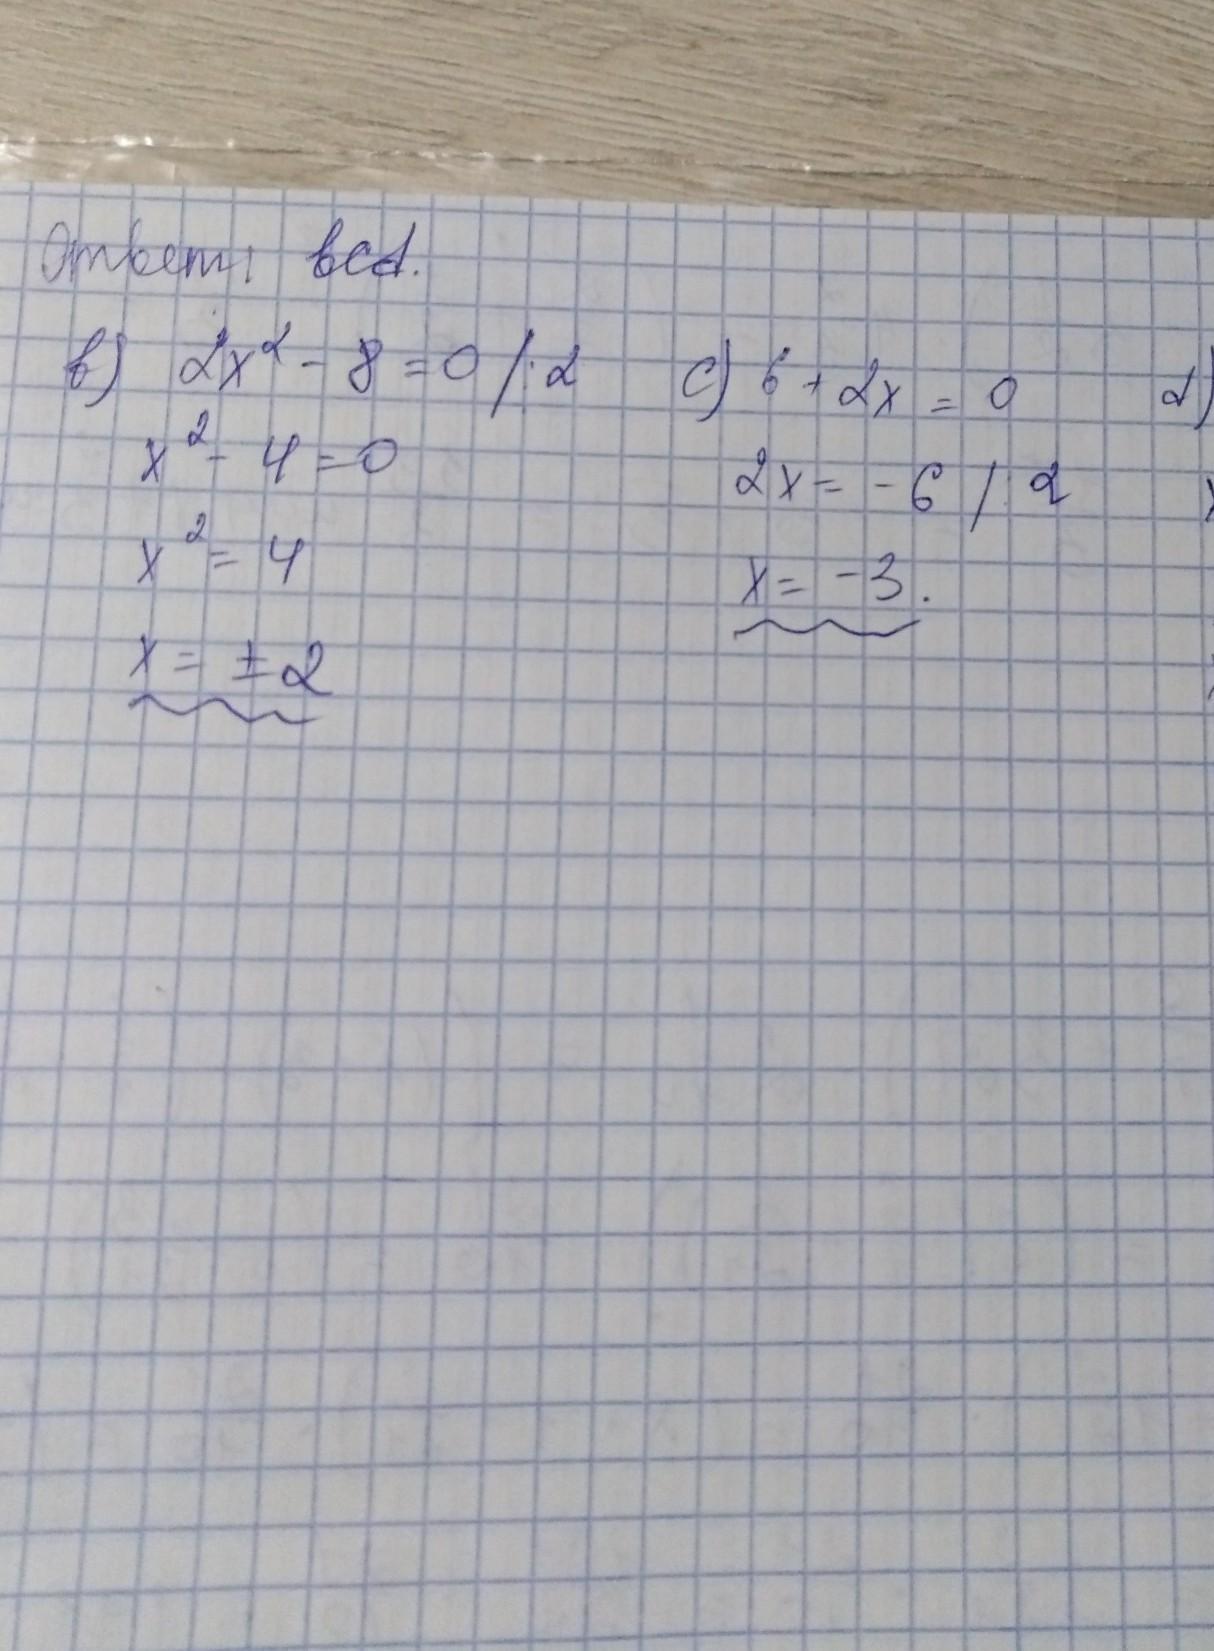 Ответ: bcd.
b) 2x² - 8 = 0 /:2
x² - 4 = 0
x² = 4
x = ±2
c) 6 + 2x = 0
2x = -6 /:2
x = -3.
d)